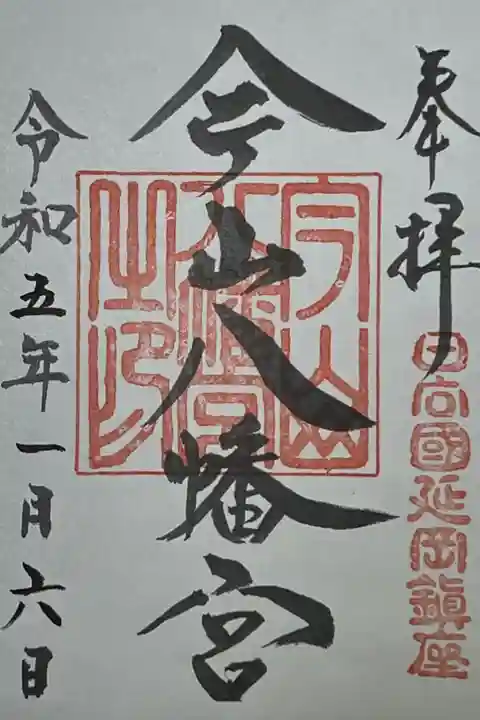 奉拝
日向國延岡鎮座
今山八幡宮
今山
八幡宮
之印
令和五年一月六日